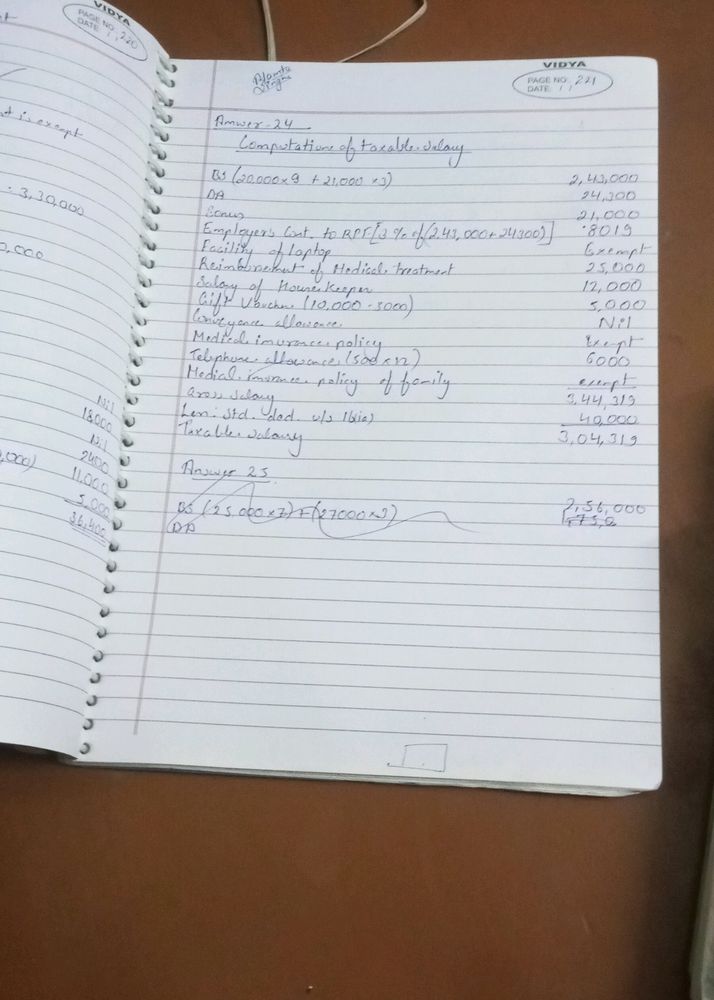 VIDYA
PAGE NO: 220
DATE: / /
t is exempt
3,30,000
0,000
Nil
18000
Nil
2400
,000) 11,000
5,000
36,400
VIDYA
PAGE NO: 221
DATE: / /
Answer-24
Computation of taxable salary
BS (20,000x9 + 21,000 x3) 2,43,000
DA 24,300
Bonus 21,000
Employers Cont. to RPF [3% of (2,43,000+24300)] 8019
Facility of laptop Exempt
Reimbursement of Medical treatment 25,000
Salary of Housekeeper 12,000
Gift Voucher (10,000-5000) 5,000
Conveyance allowance Nil
Medical insurance policy Exempt
Telephone allowance (500x12) 6000
Medical insurance policy of family exempt
Gross salary 3,44,319
Less: Std. ded. u/s 16(ia) 40,000
Taxable salary 3,04,319
Answer 25
BS (25,000x7) + (27000x3) 2,56,000
DA